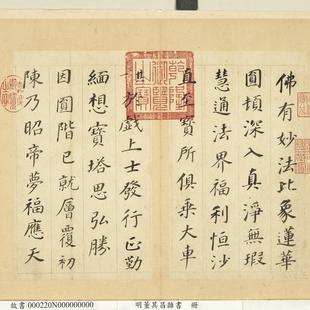 佛有妙法比象蓮華
圓頓深入真淨無瑕
慧通法界福利恒沙
直至寶所俱乘大車
其一於戲上士發行正勤
緬想寶塔思弘勝
因圓階已就層覆初
陳乃昭帝夢福應天
故書 000220N000000000 明董其昌雜書 冊